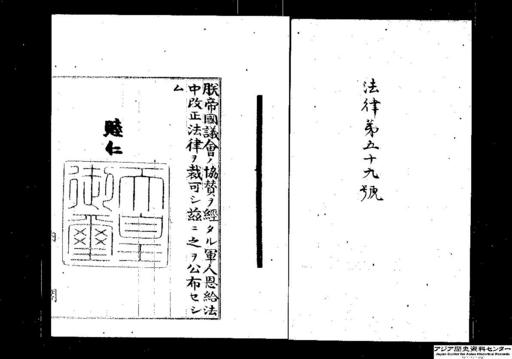 法律第五十九號
朕帝國議會ノ協賛ヲ經タル軍人恩給法
中改正法律ヲ裁可シ茲ニ之ヲ公布セシ
ム
睦仁
天皇
御璽
内閣
アジア歴史資料センター
Japan Center for Asian Historical Records